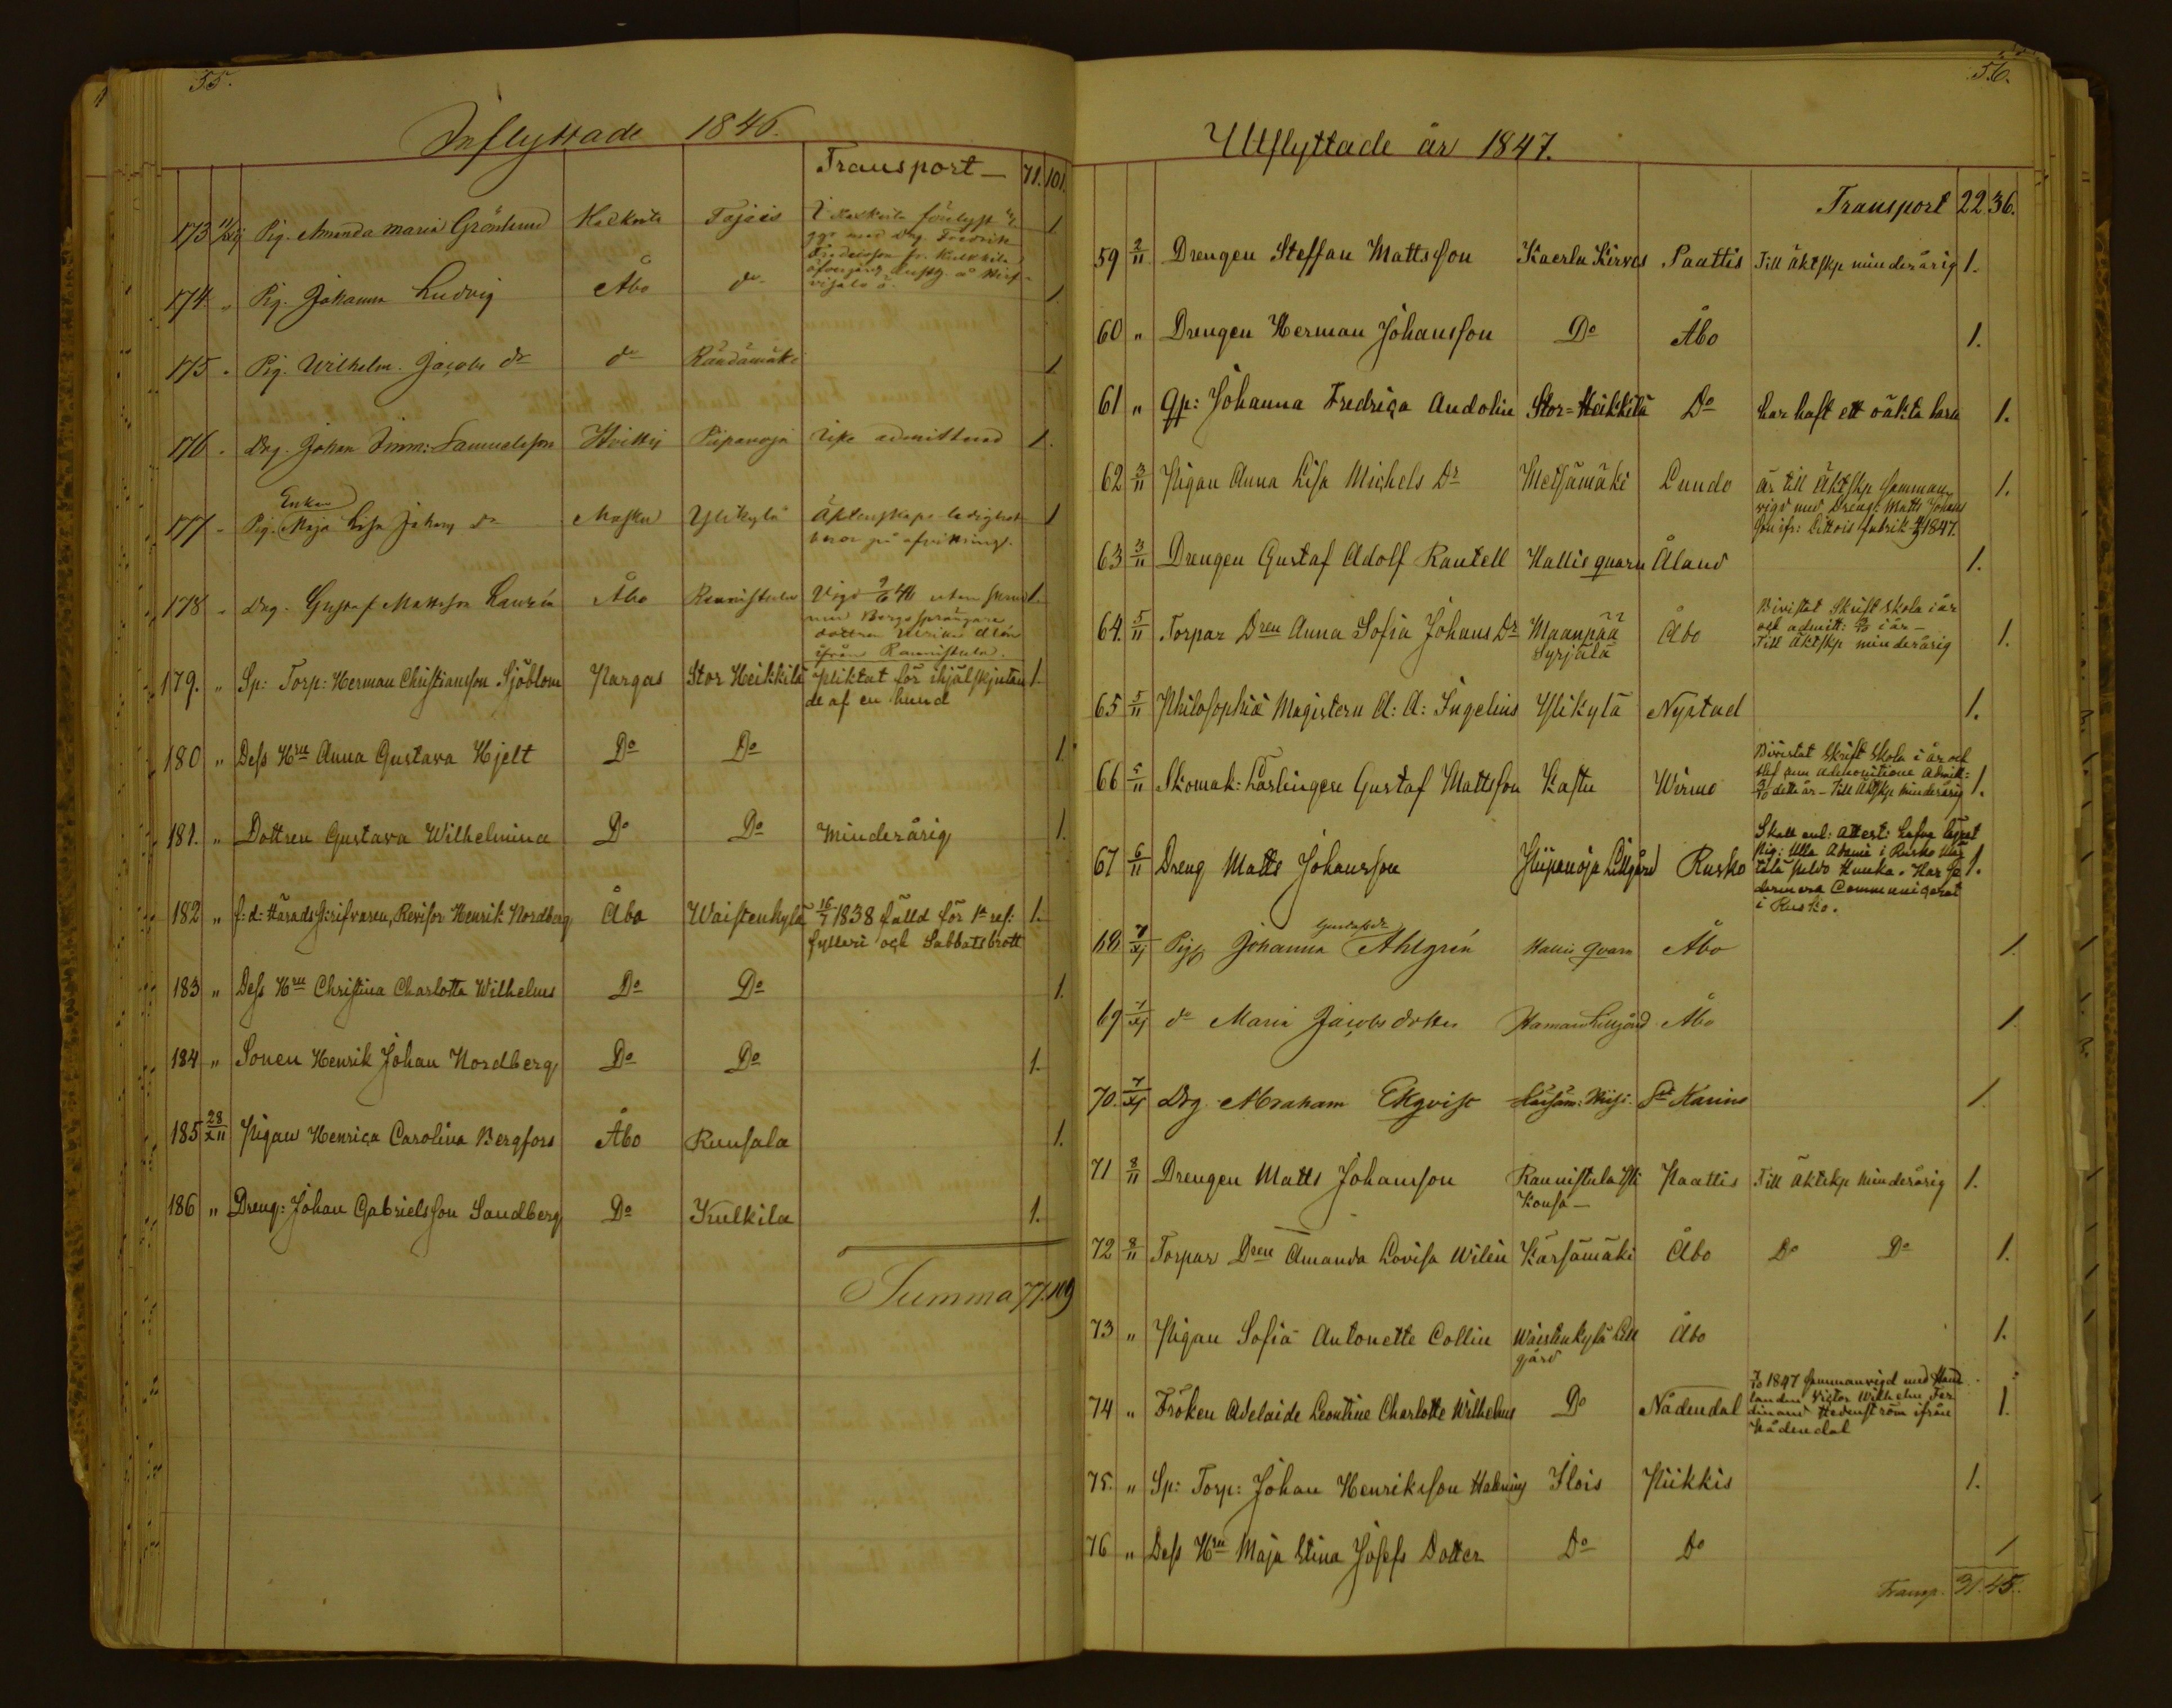 55.
Inflyttade 1846.
Transport — 71. 101.
173 Pig. Amanda Maria Grönlund
1
174. " Pig. Johanna Ludvig Åbo do 1.
175 " Pig. Wilhelm. Jacobs dr do Rändämäki 1
176 " Drg. Johan Imm: Samuelsson Hvittis Piipanoja admitterad 1.
Enkan
177 " Pig. Maja Lisa Johans dr Masku Ylikylä Äktenskaps ledighet 1
beror på afvittring.
178 " Drg. Gustaf Mattsson Laurén Åbo Raunistula Vigd 1.
med Bergsprängare
dottren Ulrika
ifrån Raunistula.
179. " Sp: Torp: Herman Christiansson Sjöblom Pargas Stor Heikkilä Pliktat för ihjälskjutan 1.
de af en hund
180 " Dess Hru Anna Gustava Hjelt Do Do 1.
181. " Dottren Gustava Wilhelmina Do Do Minderårig 1.
182 " f: d: Häradsskrifvaren, Revisor Henrik Nordberg Åbo Waistenkylä 16/7 1838 fälld för 1a res: 1.
fylleri och Sabbatsbrott
183 " Dess Hru Christina Charlotta Wilhelms Do Do 1.
184 " Sonen Henrik Johan Nordberg Do Do 1.
185 28/XII Pigan Henrica Carolina Bergfors Åbo Runsala 1.
186 " Dreng: Johan Gabrielsson Sandberg Do Kulkila 1.
Summa 77. 109
56.
Utflyttade år 1847.
Transport 22 36.
59 2/11 Drengen Steffan Mattsson Kaerla Kirves Paattis Till äktskp minderårig 1.
60 " Drengen Herman Johansson Do Åbo 1.
61 " Qp: Johanna Fredrica Andolin Stor-Heikkilä Do har haft ett oäkta barn 1.
62 3/11 Pigan Anna Lisa Michels Dr Metsämäki Lundo är till Äktskp samman 1.
vigd med Dreng: Matts Johans
son ifr: Littois fabrik 1847.
63 3/11 Drengen Gustaf Adolf Rautell Hallis quarn Åland 1.
64. 5/11 Torpar Dren Anna Sofia Johans Dr Maanpää Åbo Bivistat Skrift Skola i år
Syrjälä och admitt: i år —
Till äktskp minderårig 1.
65 5/11 Philosophiä Magistern A: A: Ingelius Ylikylä Nystad 1.
66 5/11 Skomak: Lärlingen Gustaf Mattsson Kastu Wirmo Bivistat Skrift Skola i år och
blef admonitione admitt:
detta år — Till Äktskp minderårig 1.
67 6/11 Dreng Matts Johansson Piipanoja Lillgård Rusko Skall enl: attest: hafva
Pig: Ulla i Rusko
Hunka. Har se 1.
dermera Communicerat
i Rusko.
Gustafsdr
68 7/XI Pig Johanna Ahlgrén Hallis qvarn Åbo 1.
69 7/XI do Maria Jacobs dotter Lillgård Åbo 1.
70. 7/XI Drg Abraham Ekqvist St Karins 1.
71 8/11 Drengen Matts Johansson Raunistula Yli Paattis Till Äktskp Minderårig 1.
Konsa —
72 8/11 Torpar Dren Amanda Lovisa Wilén Kärsämäki Åbo Do Do 1.
73 " Pigan Sofia Antonette Collin Waistenkylä Lill Åbo 1.
gård
74 " Fröken Adelaide Leontine Charlotte Wilhelms Do Nådendal 1847 sammanvigd med Hand
landen Victor Wilhelm Fer
dinand Hedenström ifrån 1.
Nådendal
75. " Sp: Torp: Johan Henriksson Ilois Piikkis 1.
76 " Dess Hru Maja Stina Josefs Dotter Do Do 1
Transp. 31. 45.